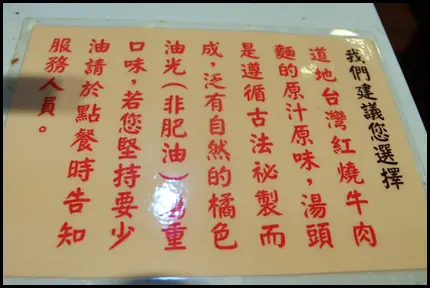 我們建議您選擇
道地台灣紅燒牛肉
麵的原汁原味，湯頭
是遵循古法祕製而
成，泛有自然的橘色
油光（非肥油）重
口味，若您堅持要少
油請於點餐時告知
服務人員。